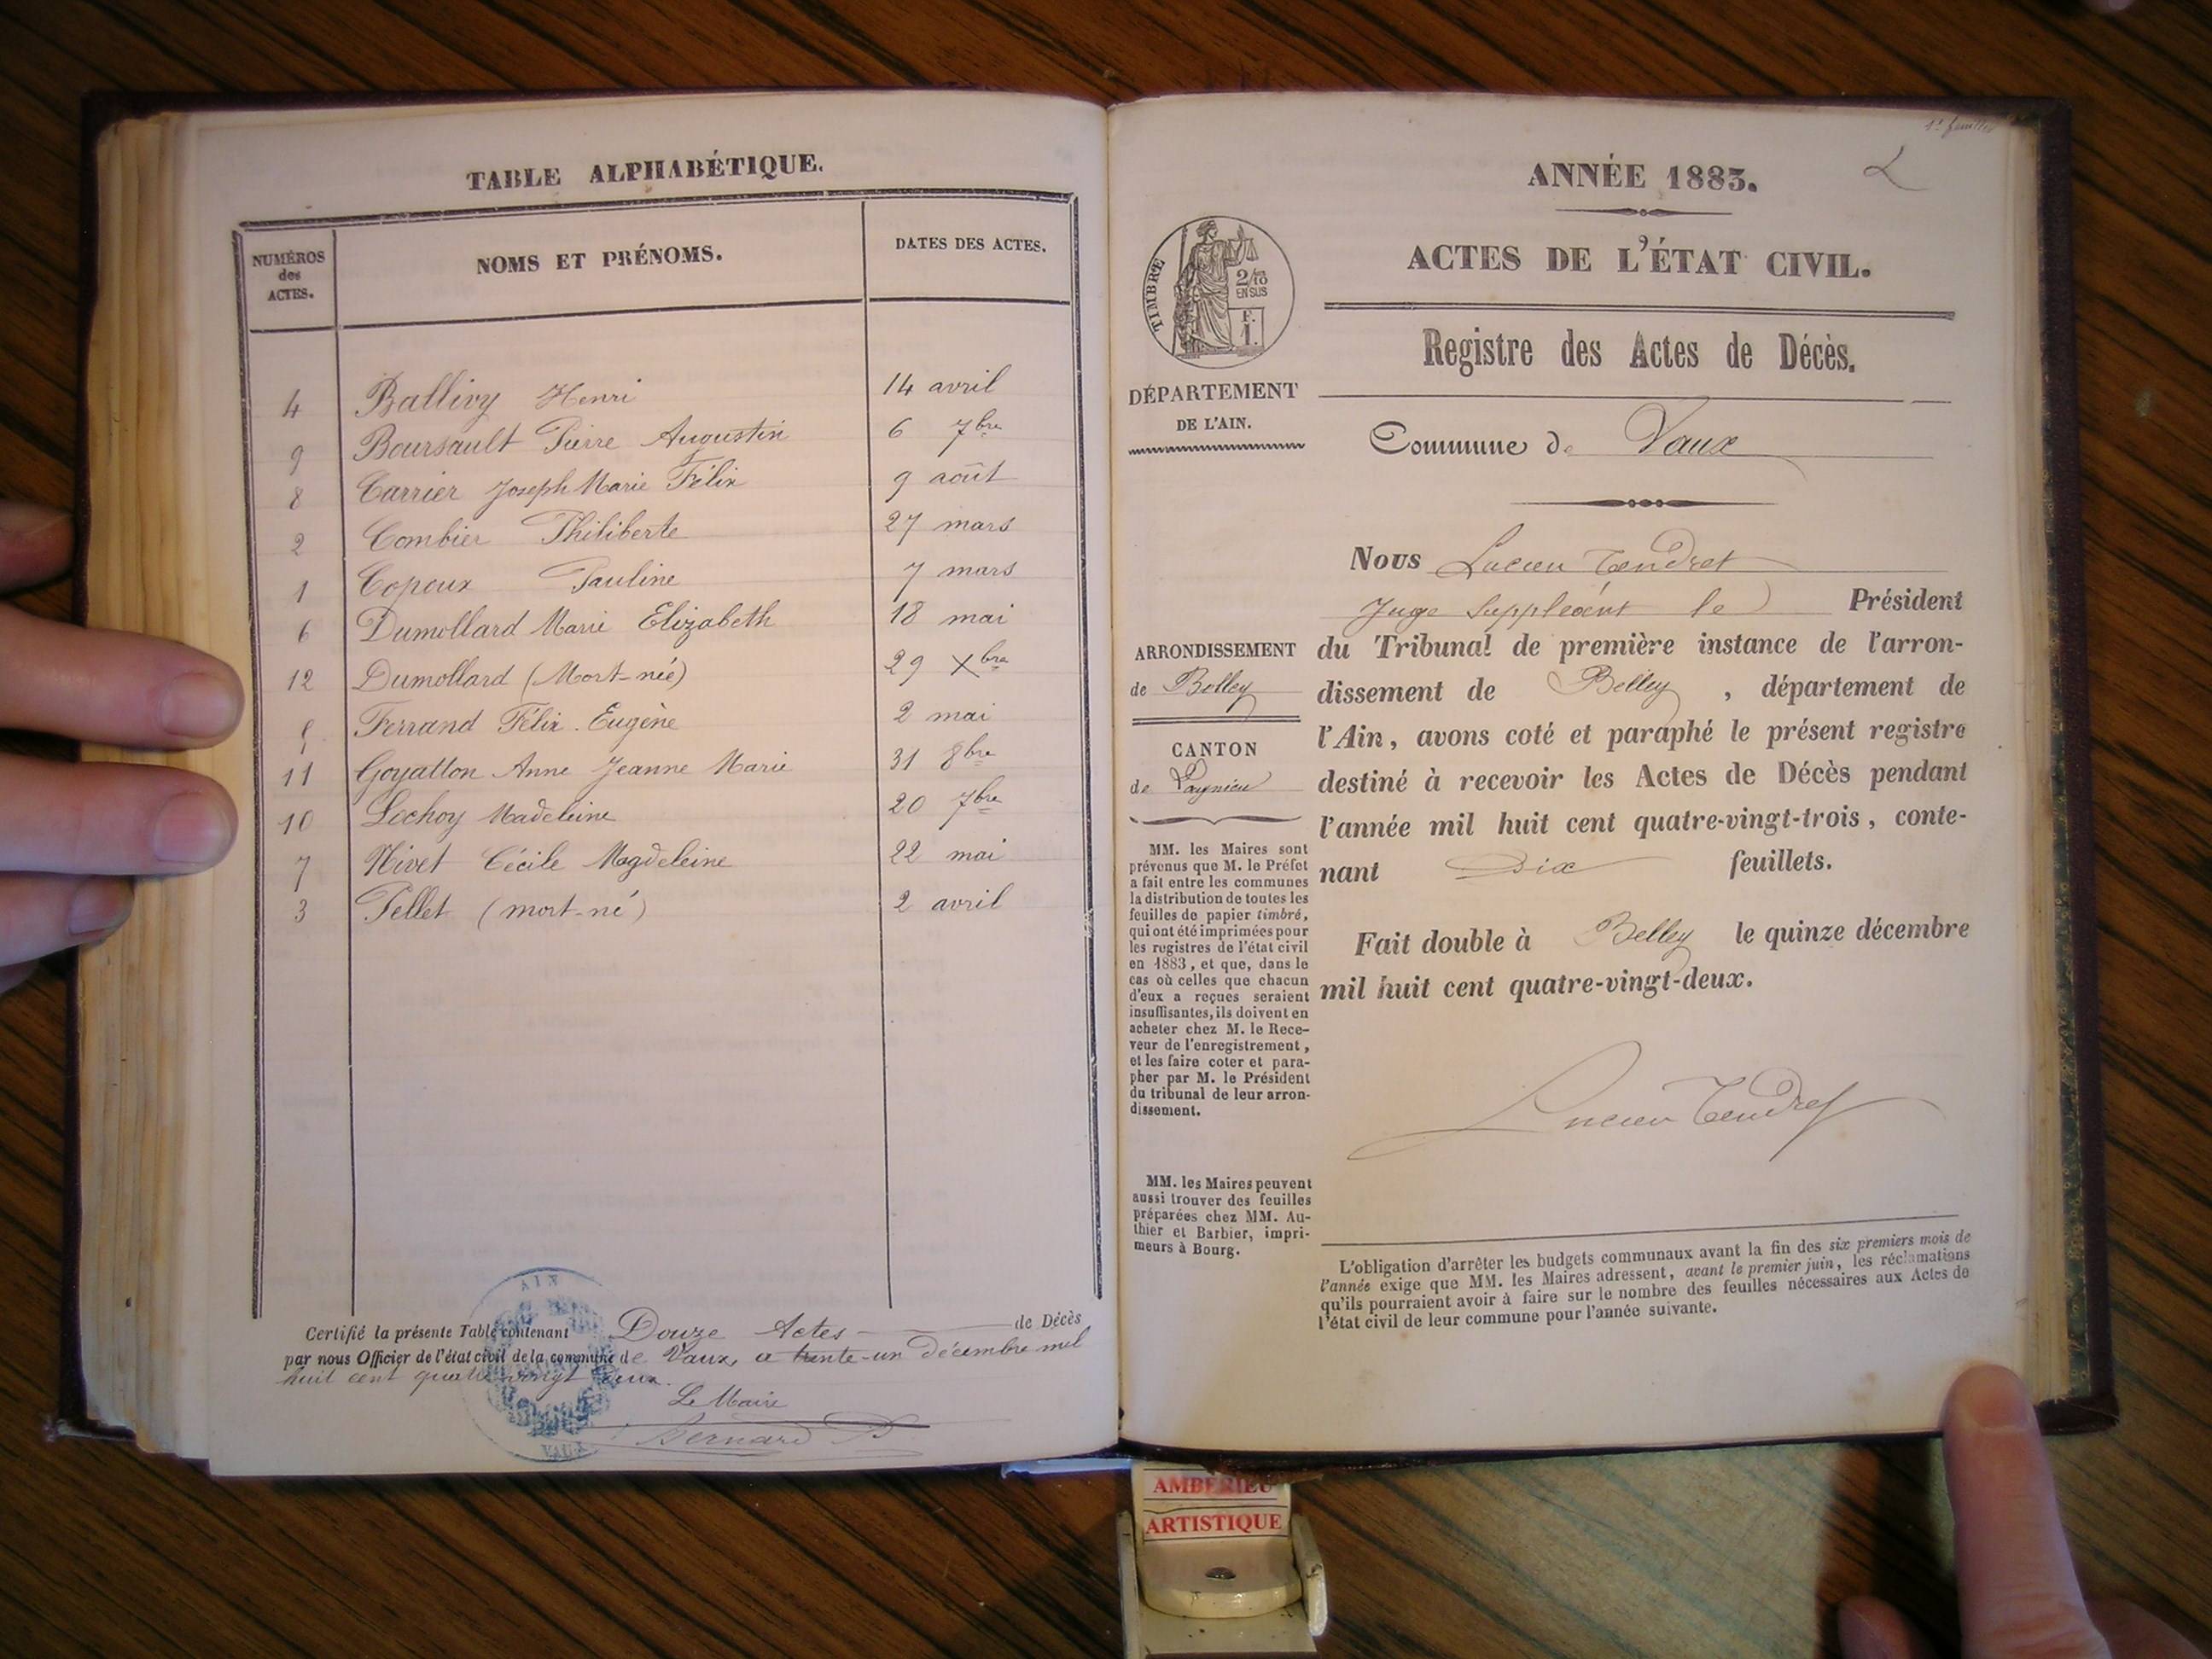 TABLE ALPHABÉTIQUE.
NUMÉROS
des
ACTES.
NOMS ET PRÉNOMS.
DATES DES ACTES.
4 Ballivy Henri 14 avril
9 Boursault Pierre Augustin 6 7bre
8 Carrier Joseph Marie Félix 9 août
2 Combier Philiberte 27 mars
1 Copoux Pauline 7 mars
6 Dumollard Marie Elizabeth 18 mai
12 Dumollard (Mort-né) 29 Xbre
Ferrand Félix Eugène 2 mai
11 Goyatton Anne Jeanne Marie 31 8bre
10 Lochoy Madeleine 20 7bre
7 Nivet Cécile Magdeleine 22 mai
3 Pellet (mort-né) 2 avril
Certifié la présente Table contenant Douze Actes de Décès
par nous Officier de l'état civil de la commune de Vaux, ce trente-un décembre mil
huit cent quatre vingt deux.
Le Maire
Bernard
AIN
VAUX
1er feuillet
ANNÉE 1883.
ACTES DE L'ÉTAT CIVIL.
TIMBRE
2/10
EN SUS
F.
1.
Registre des Actes de Décès.
DÉPARTEMENT
DE L'AIN.
Commune de Vaux
Nous Lucien Tendret
Juge Suppléant le Président
du Tribunal de première instance de l'arron-
dissement de Belley, département de
l'Ain, avons coté et paraphé le présent registre
destiné à recevoir les Actes de Décès pendant
l'année mil huit cent quatre-vingt-trois, conte-
nant Dix feuillets.
Fait double à Belley le quinze décembre
mil huit cent quatre-vingt-deux.
Lucien Tendret
ARRONDISSEMENT
de Belley
CANTON
de Lagnieu
MM. les Maires sont
prévenus que M. le Préfet
a fait entre les communes
la distribution de toutes les
feuilles de papier timbré,
qui ont été imprimées pour
les registres de l'état civil
en 1883, et que, dans le
cas où celles que chacun
d'eux a reçues seraient
insuffisantes, ils doivent en
acheter chez M. le Rece-
veur de l'enregistrement,
et les faire coter et para-
pher par M. le Président
du tribunal de leur arron-
dissement.
MM. les Maires peuvent
aussi trouver des feuilles
préparées chez MM. Au-
thier et Barbier, impri-
meurs à Bourg.
L'obligation d'arrêter les budgets communaux avant la fin des six premiers mois de
l'année exige que MM. les Maires adressent, avant le premier juin, les réclamations
qu'ils pourraient avoir à faire sur le nombre des feuilles nécessaires aux Actes de
l'état civil de leur commune pour l'année suivante.
AMBERIEU
ARTISTIQUE